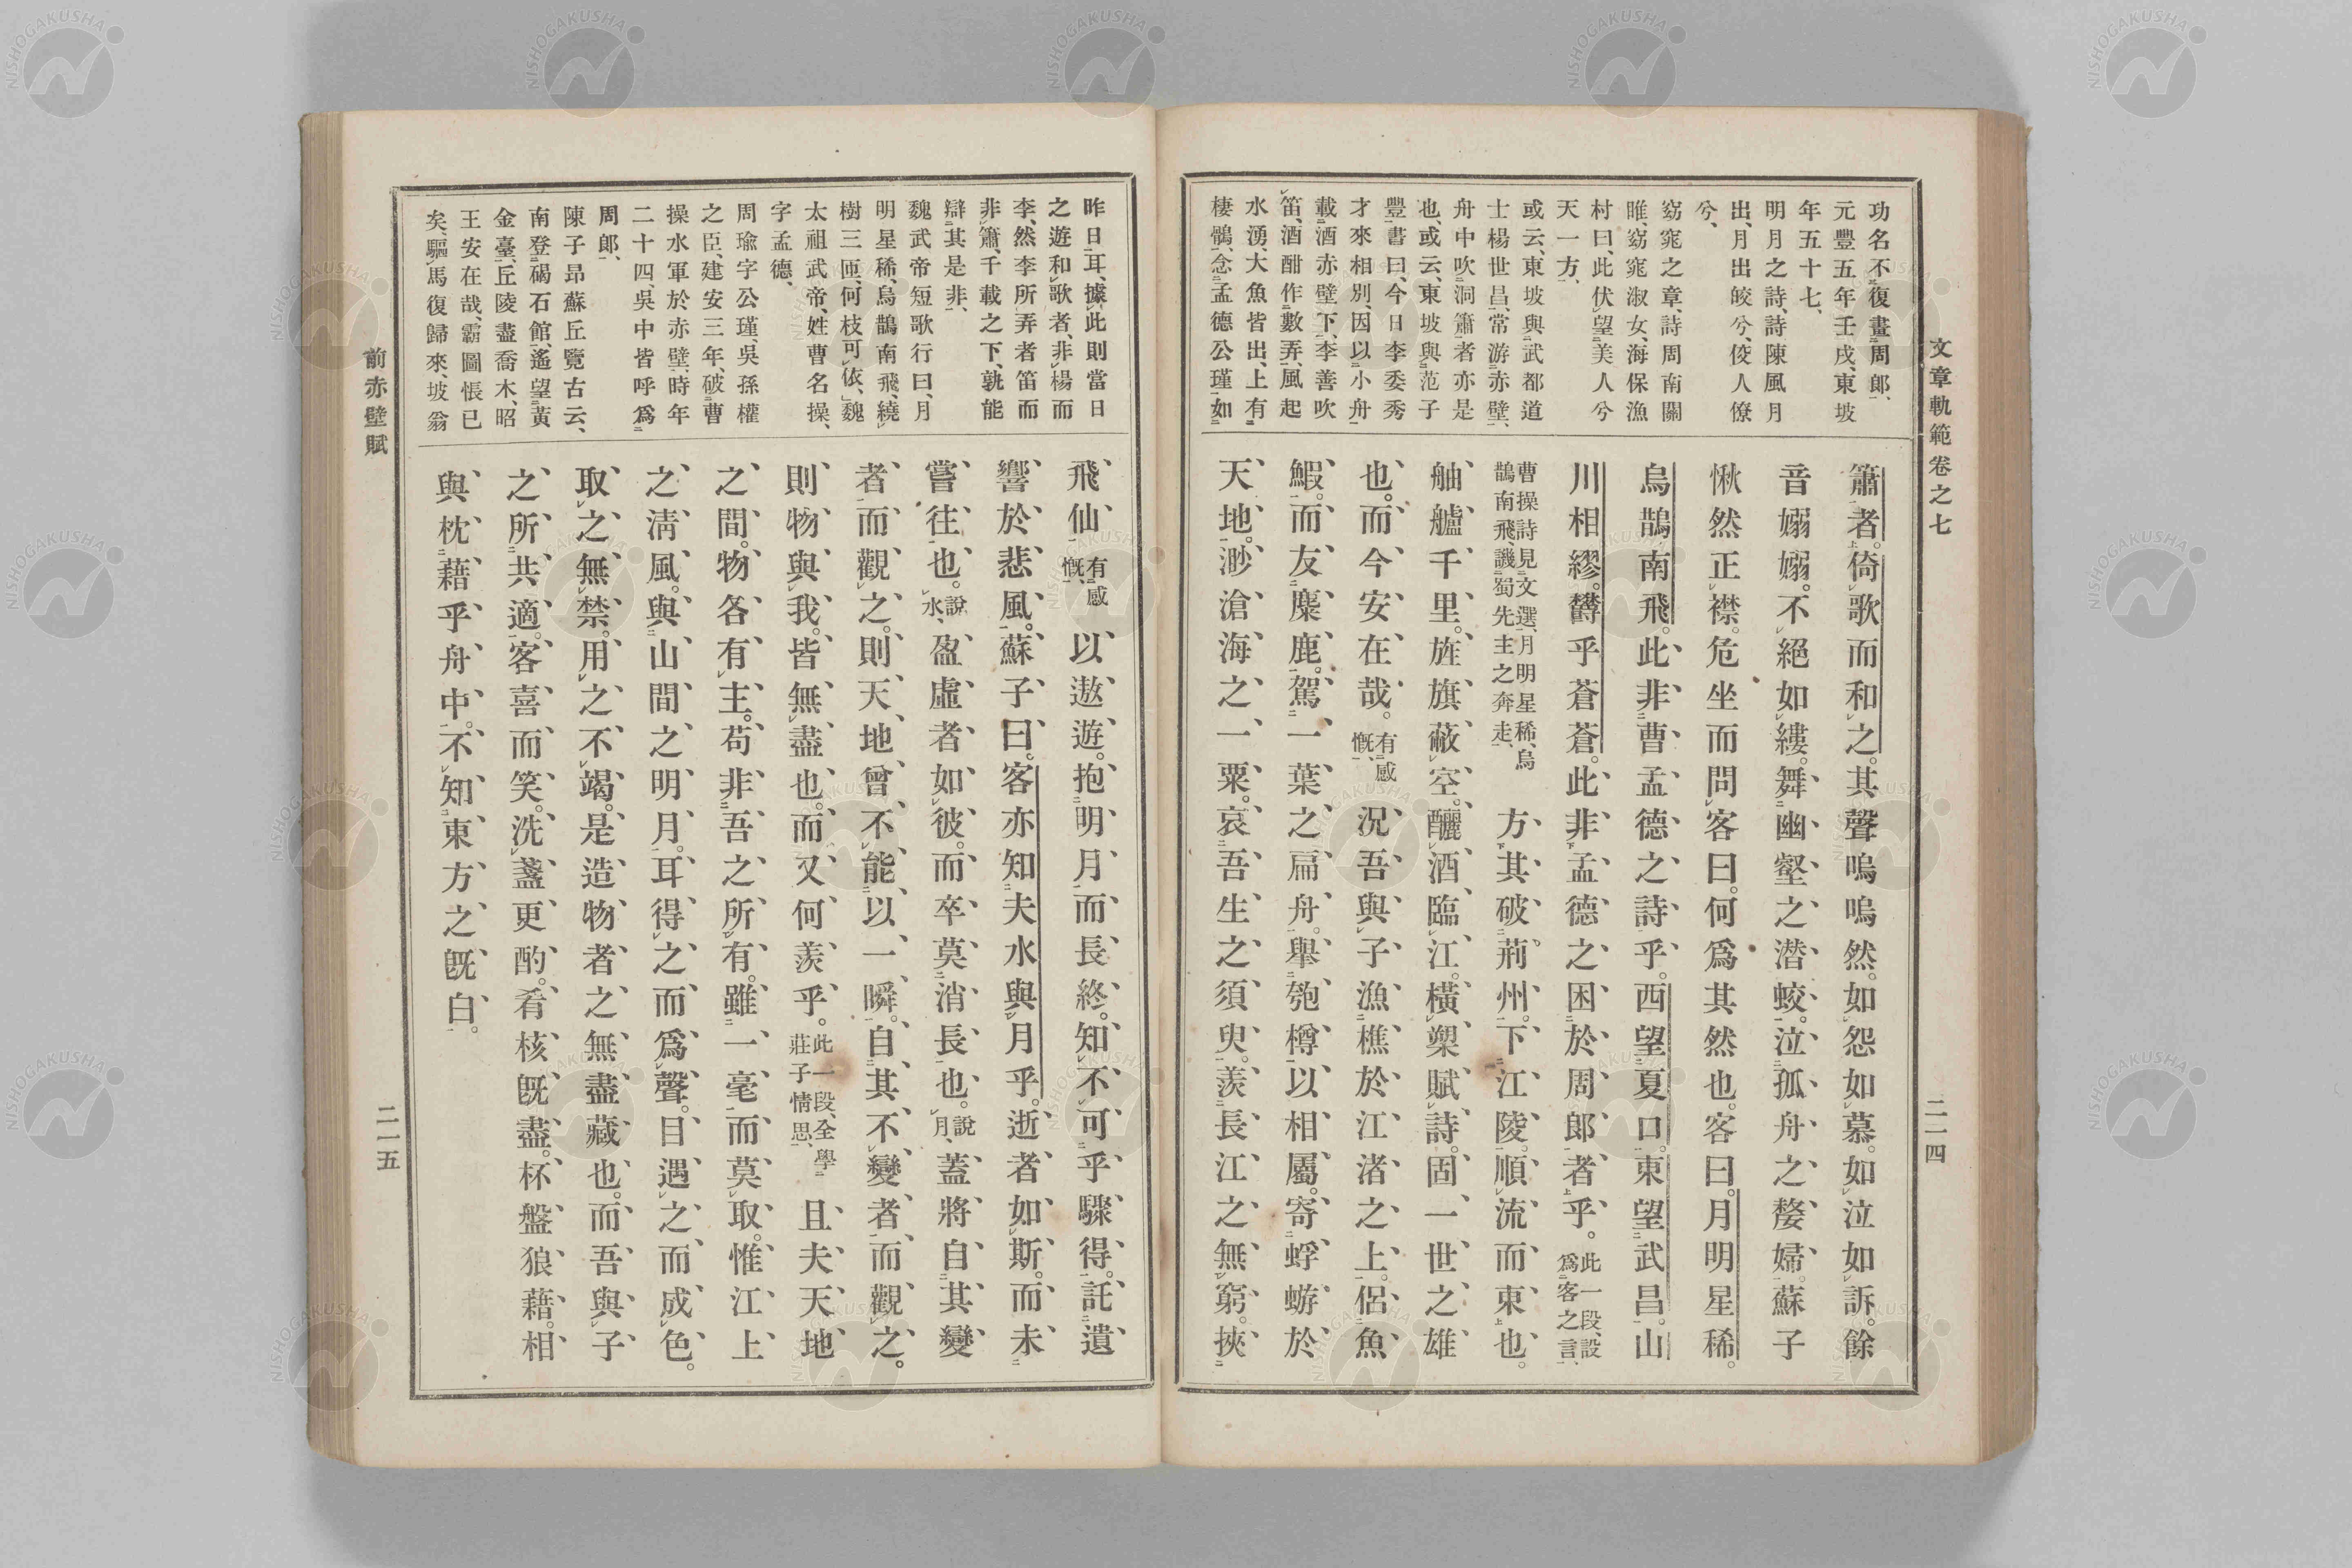 文章軌範卷之七
二一四
功名不復畫周郎、
元豐五年壬戌、東坡
年五十七、
明月之詩、詩陳風月
出、月出皎兮、佼人僚
兮、
窈窕之章、詩周南關
睢、窈窕淑女、海保漁
村曰、此伏望美人兮
天一方、
或云、東坡與武都道
士楊世昌、常游赤壁、
舟中吹洞簫者亦是
也、或云、東坡與范子
豐書曰、今日李委秀
才來相別、因以小舟
載酒赤壁下、李善吹
笛、酒酣作數弄、風起
水湧、大魚皆出、上有
棲鶻、念孟德公瑾如
簫者。倚歌而和之。其聲嗚嗚然。如怨如慕。如泣如訴。餘
音嫋嫋。不絕如縷。舞幽壑之潜蛟。泣孤舟之嫠婦。蘇子
愀然正襟。危坐而問客曰。何爲其然也。客曰。月明星稀。
烏鵲南飛。此非曹孟德之詩乎。西望夏口。東望武昌。山
川相繆。欝乎蒼蒼。此非孟德之困於周郎者乎。此一段、設爲客之言、
曹操詩見文選、月明星稀、烏鵲南飛、譏蜀先主之奔走、方其破荊州。下江陵。順流而東也。
舳艫千里。旌旗蔽空。釃酒臨江。橫槊賦詩。固一世之雄
也。而今安在哉。有感慨、況吾與子漁樵於江渚之上。侶魚
鰕。而友麋鹿。駕一葉之扁舟。舉匏樽以相屬。寄蜉蝣於
天地。渺滄海之一粟。哀吾生之須臾。羨長江之無窮。挾
昨日耳、據此則當日
之遊和歌者、非楊而
李、然李所弄者笛而
非簫、千載之下、孰能
辯其是非、
魏武帝短歌行曰、月
明星稀、烏鵲南飛、繞
樹三匝、何枝可依、魏
太祖武帝、姓曹名操、
字孟德、
周瑜字公瑾、吳孫權
之臣、建安三年、破曹
操水軍於赤壁、時年
二十四、吳中皆呼爲
周郎、
陳子昂蘇丘覽古云、
南登碣石館、遙望黃
金臺、丘陵盡喬木、昭
王安在哉、霸圖悵已
矣、驅馬復歸來、坡翁
飛仙有感慨、以遨遊。抱明月而長終。知不可乎驟得。託遺
響於悲風。蘇子曰。客亦知夫水與月乎。逝者如斯。而未
嘗往也。說水、盈虛者如彼。而卒莫消長也。說月、蓋將自其變
者而觀之。則天地曾不能以一瞬。自其不變者而觀之。
則物與我。皆無盡也。而又何羨乎。此一段、全學莊子情思、且夫天地
之間。物各有主。苟非吾之所有。雖一毫而莫取。惟江上
之淸風。與山間之明月。耳得之而爲聲。目遇之而成色。
取之無禁。用之不竭。是造物者之無盡藏也。而吾與子
之所共適。客喜而笑。洗盞更酌。肴核旣盡。杯盤狼藉。相
與枕藉乎舟中。不知東方之旣白。
前赤壁賦
二一五
NISHOGAKUSHA